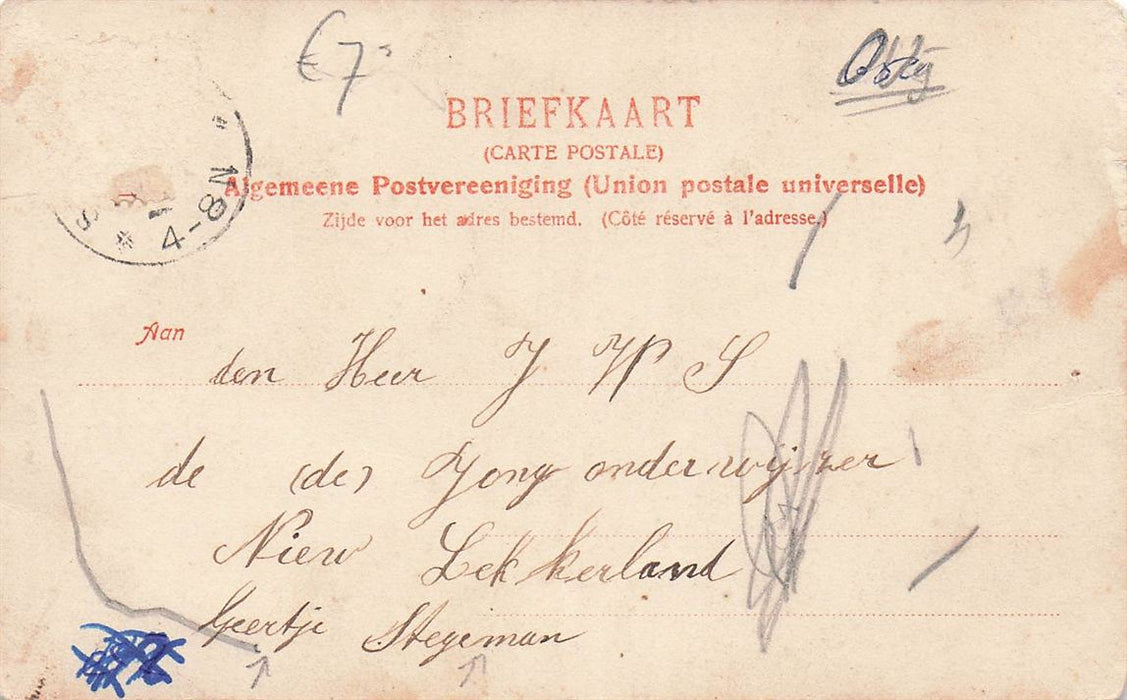 € 7
BRIEFKAART
(CARTE POSTALE)
Algemeene Postvereeniging (Union postale universelle)
Zijde voor het adres bestemd. (Côté réservé à l'adresse.)
4-8N
Aan
den Heer J W S
de (de) Jong onderwijzer
Niew Lekkerland
Geertje Stegeman